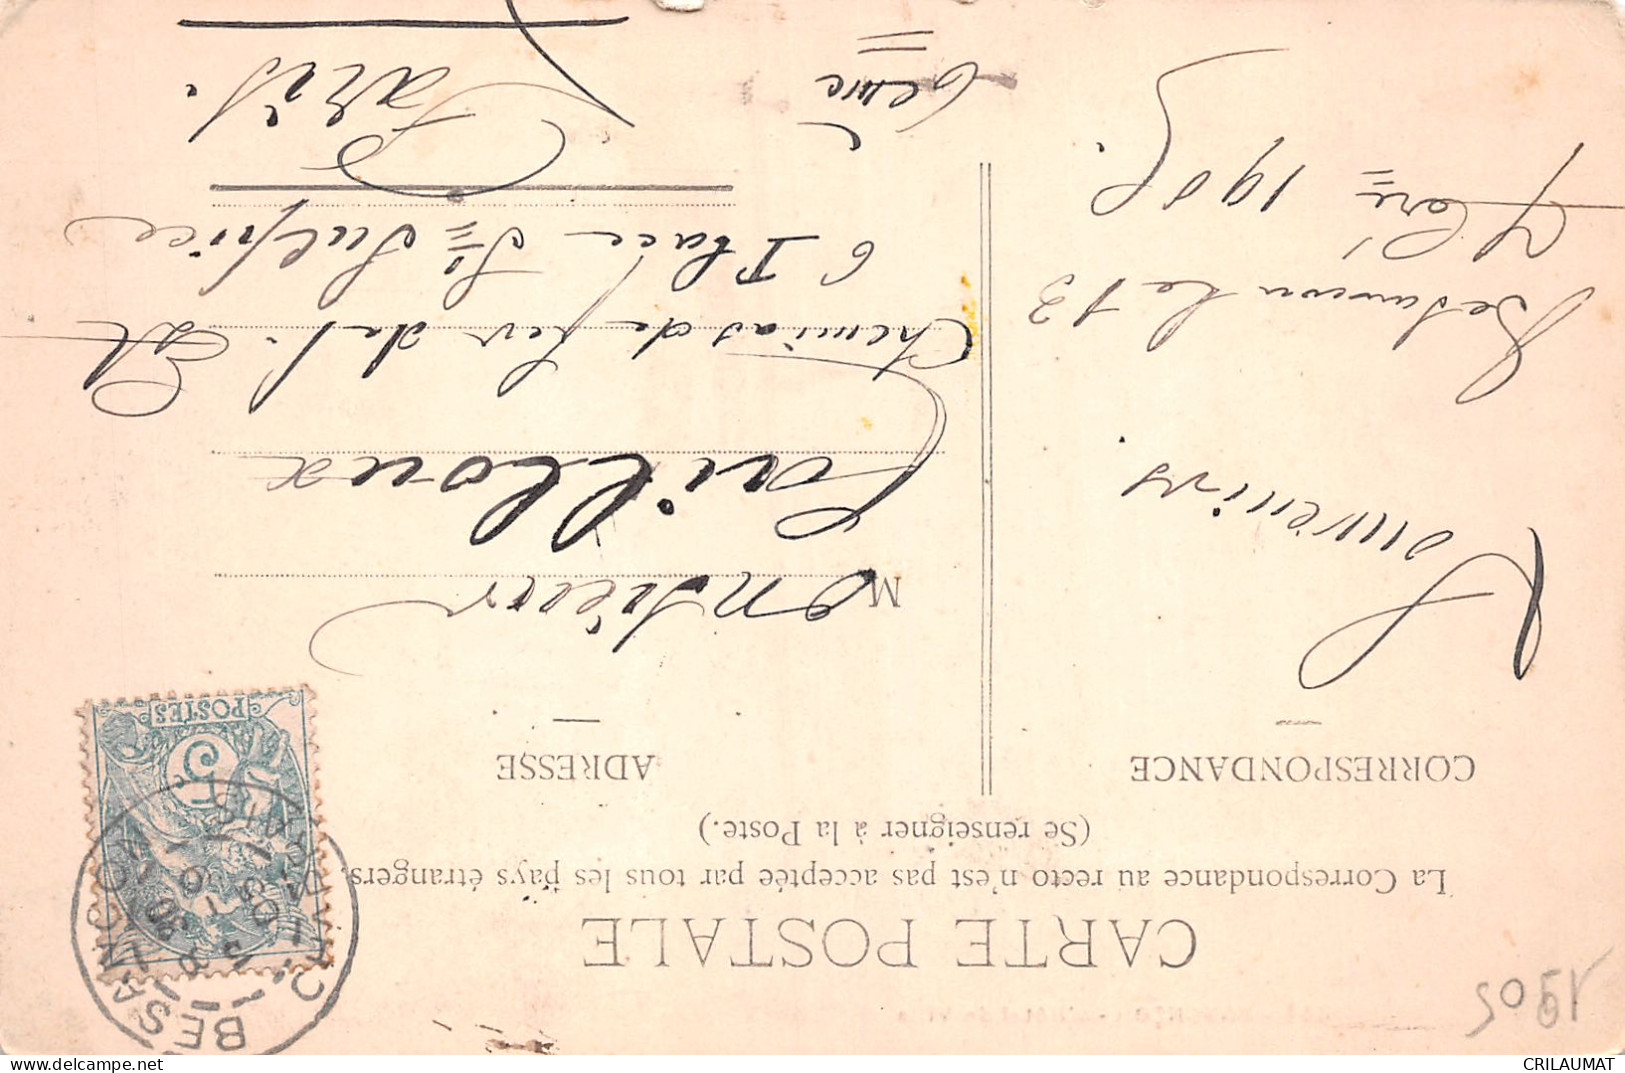 CARTE POSTALE
La Correspondance au recto n'est pas acceptée par tous les pays étrangers.
(Se renseigner à la Poste.)
CORRESPONDANCE
Souvenirs.
Besançon le 13
1905.
ADRESSE
Monsieur
Cailloux
Chemins de fer de l'Est
6 Place St Sulpice
Paris.
6eme
POSTES
5
BESANÇON
1905
CRILAUMAT